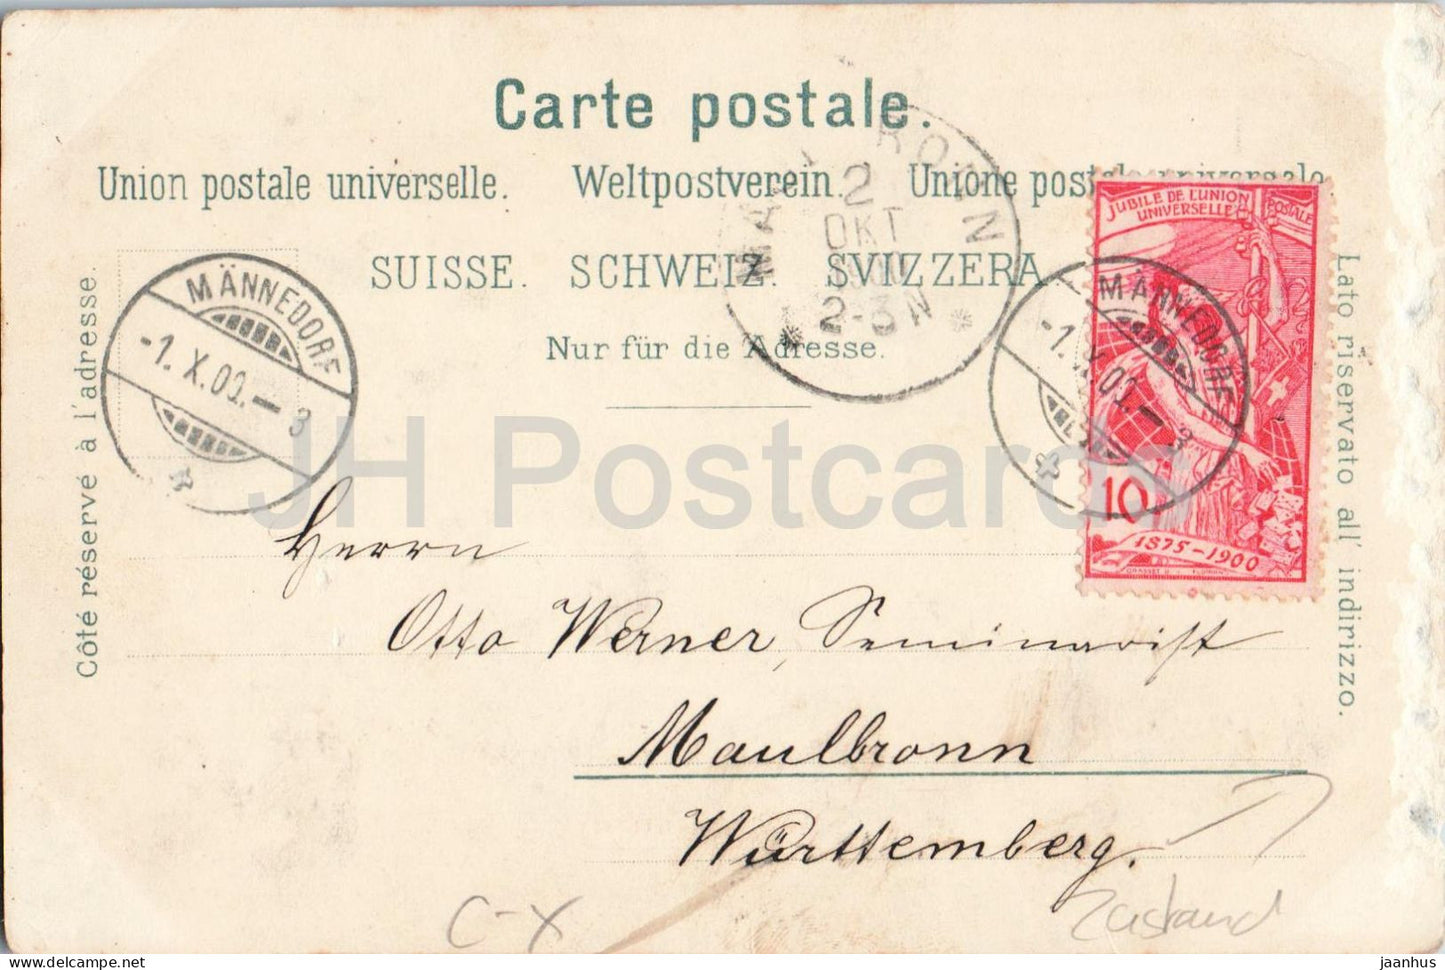 Carte postale.
Union postale universelle. Weltpostverein. Unione postale universale
SUISSE. SCHWEIZ. SVIZZERA.
Nur für die Adresse.
Côté réservé à l'adresse.
Lato riservato all' indirizzo.
MÄNNEDORF
-1. X. 00. — 3
MAULBRONN
2
OKT
2-3 N
MÄNNEDORF
-1. X. 00. — 3
JUBILÉ DE L'UNION
UNIVERSELLE POSTALE
10
1875-1900
Herrn
Otto Werner, Seminarist
Maulbronn
Württemberg.
C-X
Zustand
JH Postcards
jaanhus € delcampe.net